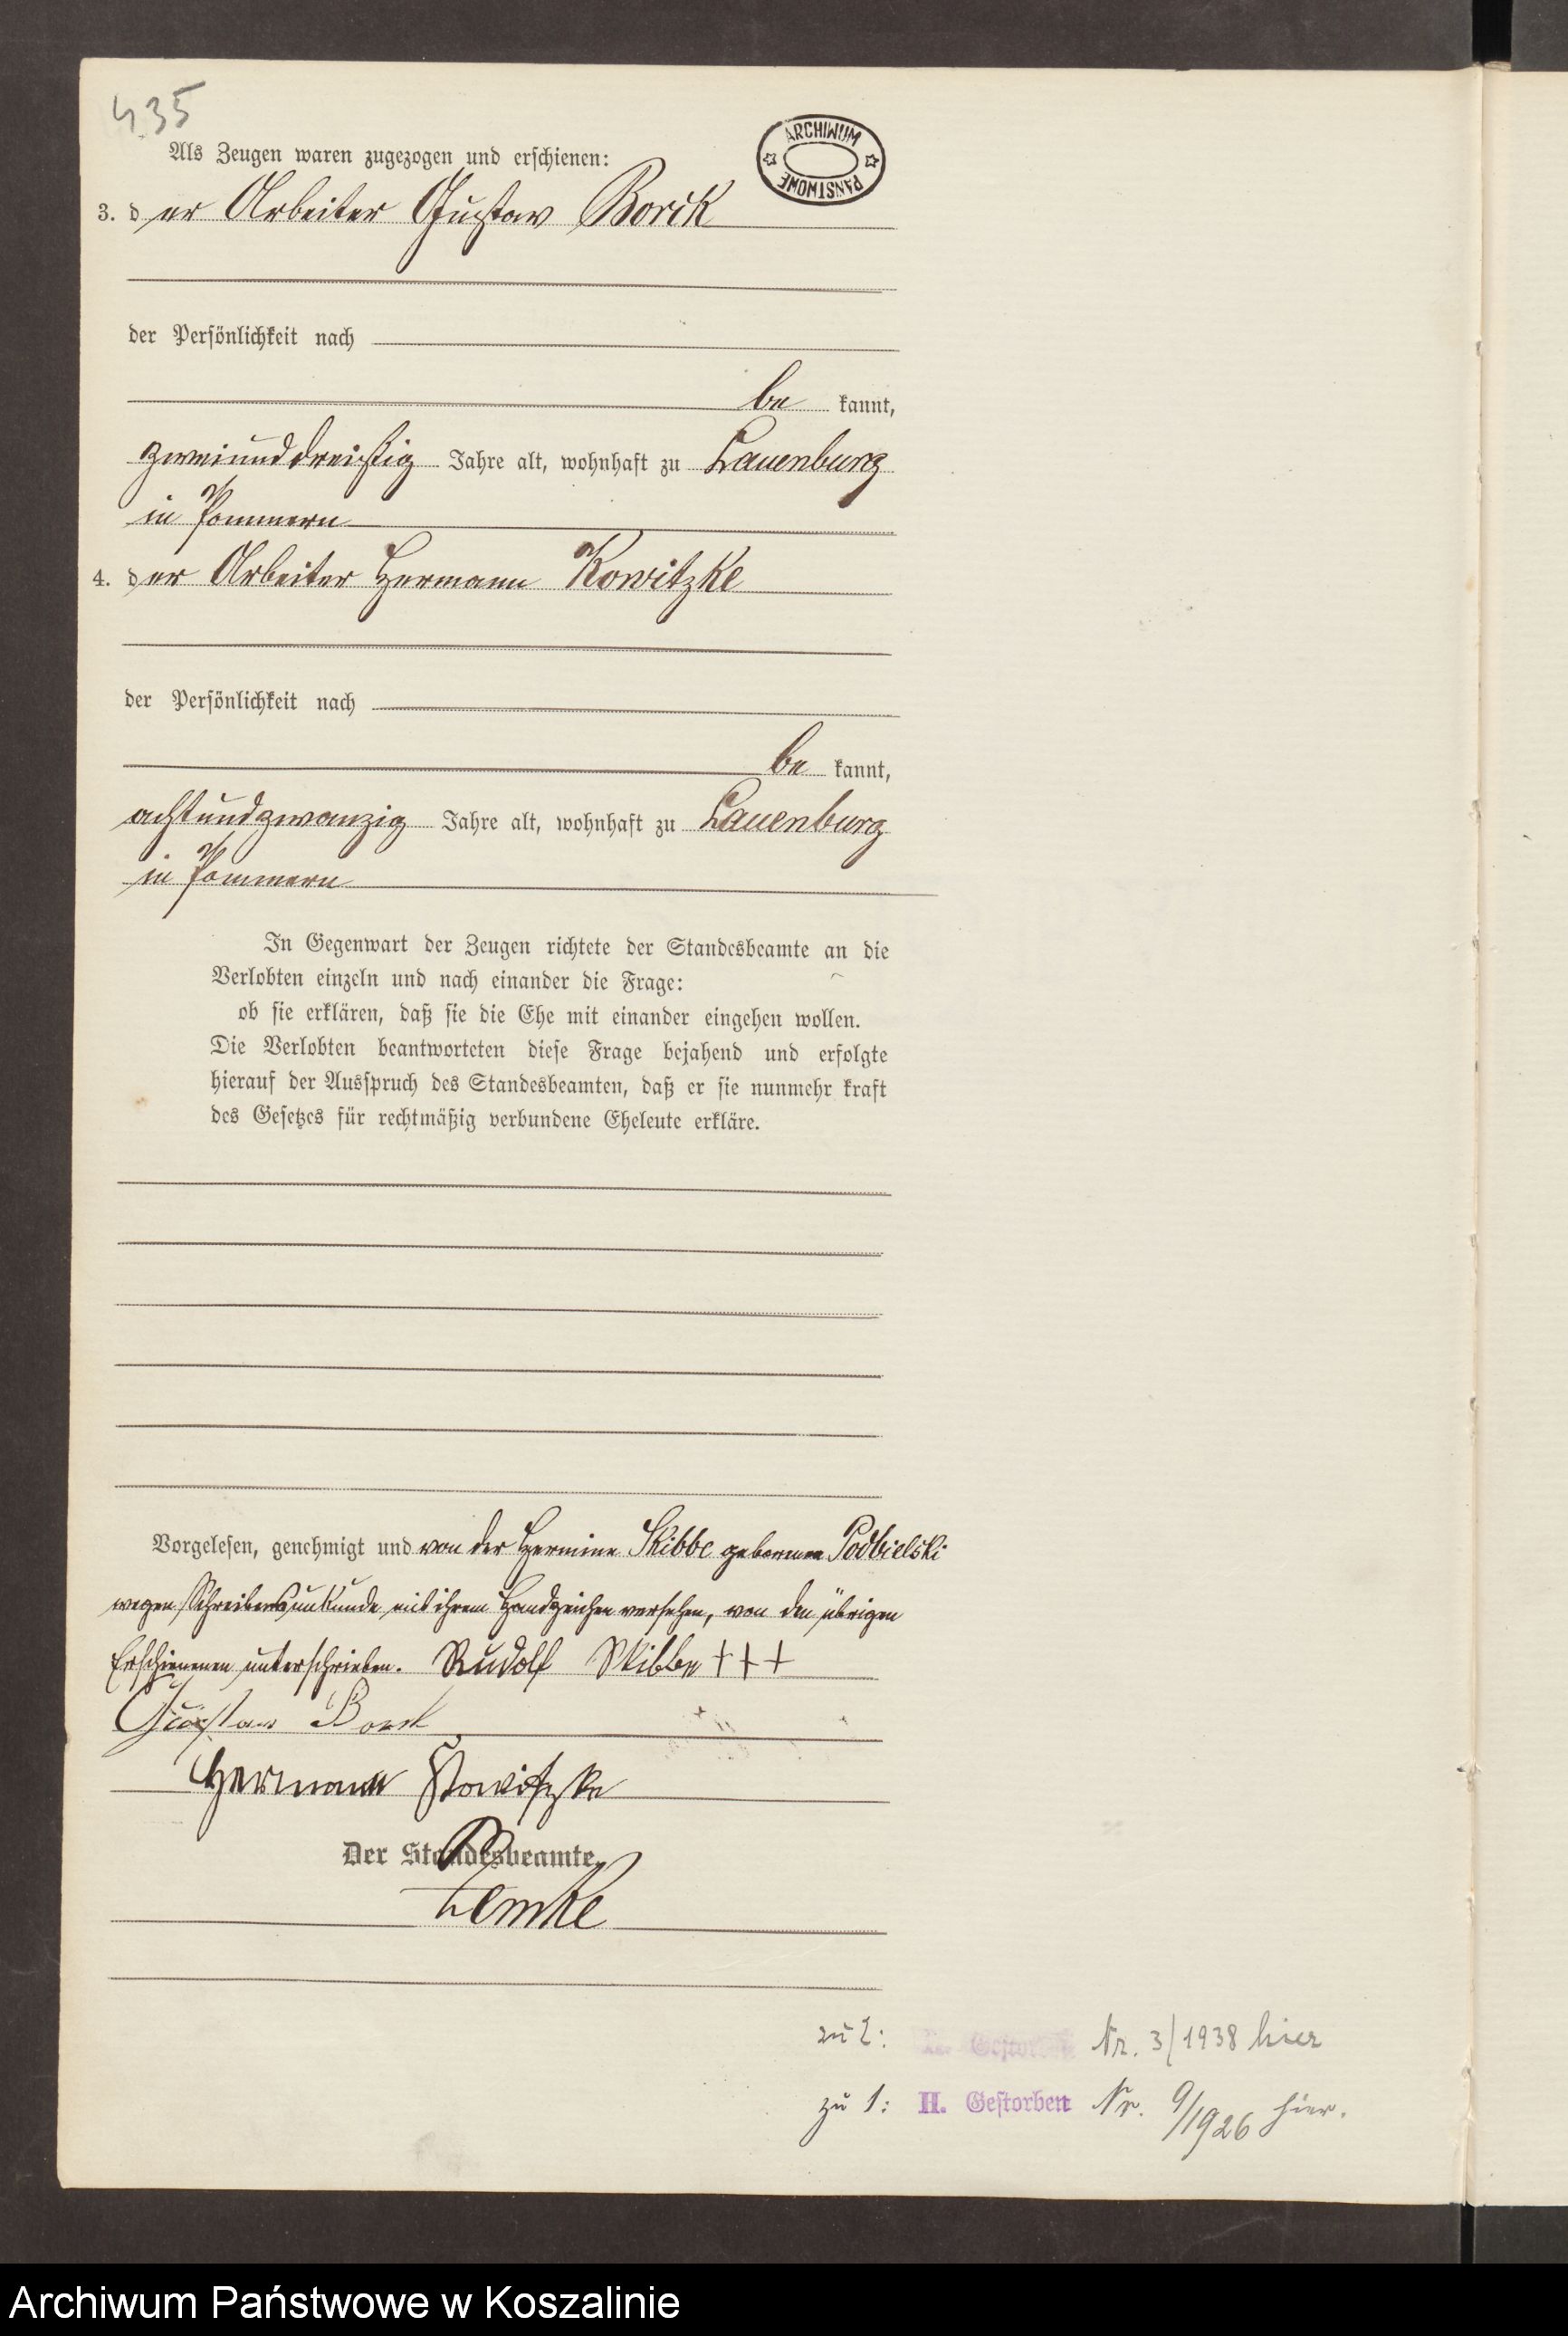 435
ARCHIWUM PAŃSTWOWE
Als Zeugen waren zugezogen und erschienen:
3. der Arbeiter Gustav Borck
der Persönlichkeit nach
be kannt,
zweiunddreißig Jahre alt, wohnhaft zu Lauenburg
in Pommern
4. der Arbeiter Hermann Kowitzke
der Persönlichkeit nach
be kannt,
achtundzwanzig Jahre alt, wohnhaft zu Lauenburg
in Pommern
In Gegenwart der Zeugen richtete der Standesbeamte an die
Verlobten einzeln und nach einander die Frage:
ob sie erklären, daß sie die Ehe mit einander eingehen wollen.
Die Verlobten beantworteten diese Frage bejahend und erfolgte
hierauf der Ausspruch des Standesbeamten, daß er sie nunmehr kraft
des Gesetzes für rechtmäßig verbundene Eheleute erkläre.
Vorgelesen, genehmigt und von der Hermine Skibbe geborenen Podbielski
wegen Schreibensunkunde mit ihrem Handzeichen versehen, von den übrigen
Erschienenen unterschrieben. Rudolf Skibbe +++
Gustav Borck
Hermann Kowitzke
Der Standesbeamte.
Lemke
zu 2: Gestorben Nr. 3/1938 hier
zu 1: H. Gestorben Nr. 9/1926 hier.
Archiwum Państwowe w Koszalinie